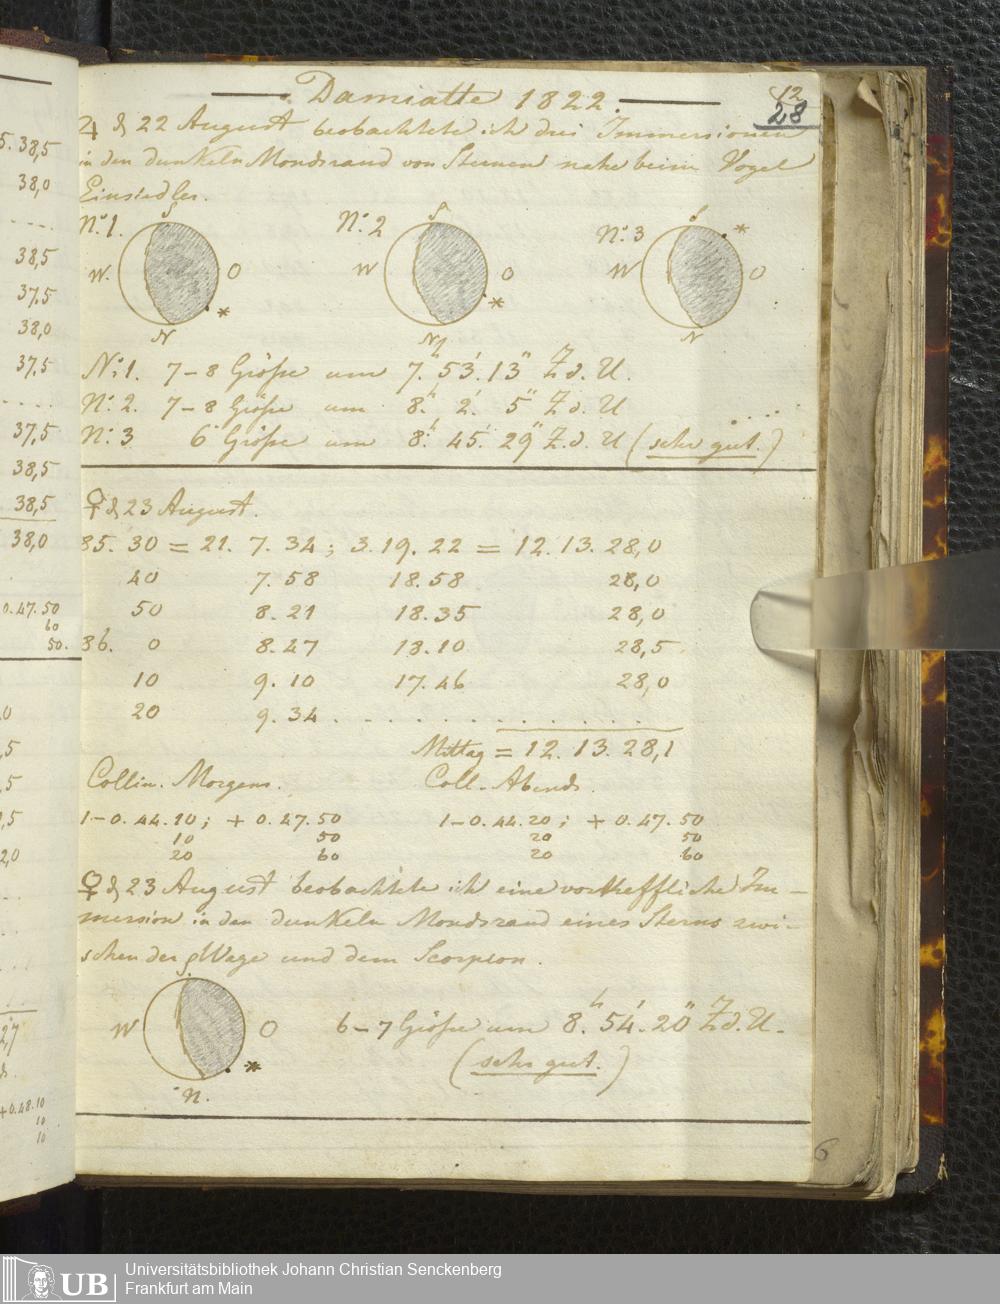 5. 38,5
38,0
38,5
37,5
38,0
37,5
37,5
38,5
38,5
38,0
0.47.50
60
50.
+0.48.10
10
10
Damiatte 1822.
42
28
♃ d 22 August beobachtete ich drei Immersionen
in den dunkeln Mondsrand von Sternen nahe beim Vogel
Einsiedler.
N° 1. S W. O N *
N° 2 S W O N *
N° 3 S W O N *
N° 1. 7–8 Größe um 7.h 53.' 13" Z. d. U.
N° 2. 7–8 Größe um 8.h 2.' 5" Z. d. U
N° 3 6 Größe um 8.h 45.' 29" Z. d. U (sehr gut.)
♀ d 23 August.
85. 30 = 21. 7. 34; 3. 19. 22 = 12. 13. 28,0
40 7. 58 18. 58 28,0
50 8. 21 18. 35 28,0
86. 0 8. 47 18. 10 28,5
10 9. 10 17. 46 28,0
20 9. 34 . . . . . . . . . . .
Mittag = 12. 13. 28,1
Collim. Morgens. Coll. Abends.
1 – 0. 44. 10; + 0. 47. 50 1 – 0. 44. 20; + 0. 47. 50
10 50 20 50
20 60 20 60
♀ d 23 August beobachtete ich eine vortreffliche Im-
mersion in den dunkeln Mondsrand eines Sterns zwi-
schen der Wage und dem Scorpion.
S W O N. *
6–7 Größe um 8.h 54.' 20" Z. d. U.
(sehr gut.)
6
UB
Universitätsbibliothek Johann Christian Senckenberg
Frankfurt am Main